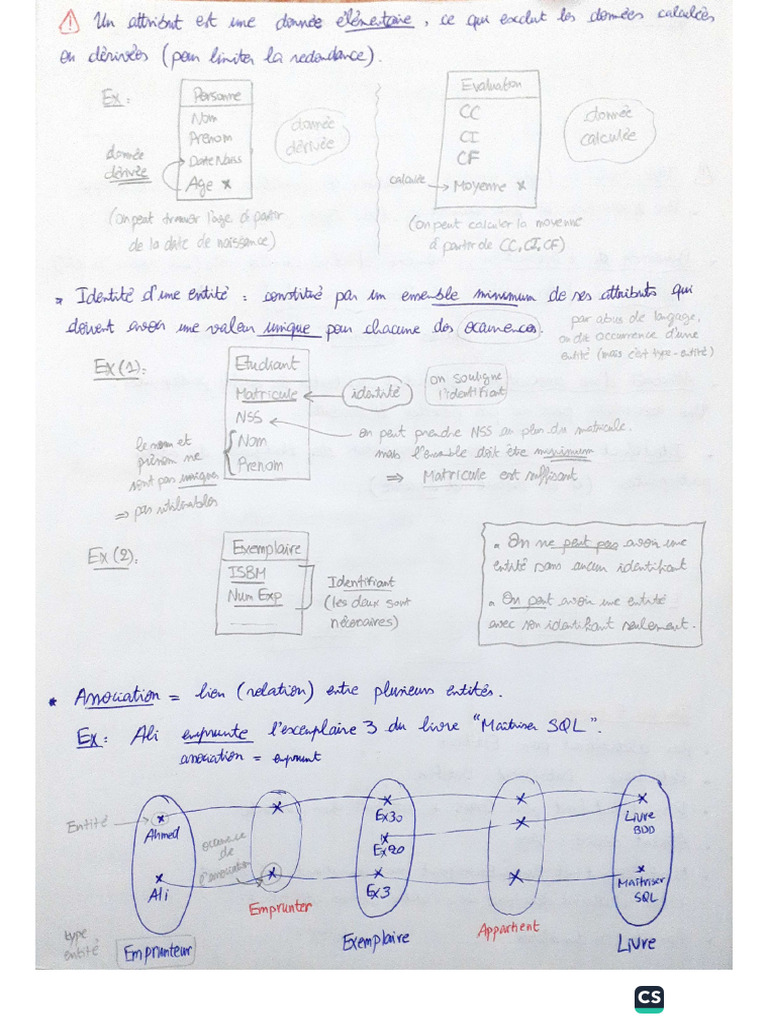 ⚠ Un attribut est une donnée élémentaire, ce qui exclut les données calculées
ou dérivées (pour limiter la redondance).
Ex:
Personne
Nom
Prenom
Date Naiss
Age x
donnée
dérivée
donnée
dérivée
(on peut trouver l'age à partir
de la date de naissance)
Evaluation
CC
CI
CF
Moyenne x
calculée
donnée
calculée
(on peut calculer la moyenne
à partir de CC, CI, CF)
* Identité d'une entité : constitué par un ensemble minimum de ses attributs qui
doivent avoir une valeur unique pour chacune des occurrences.
par abus de langage,
on dit occurrence d'une
entité (mais c'est type-entité)
Ex(1):
Etudiant
Matricule
NSS
Nom
Prenom
identité
on souligne
l'identifiant
on peut prendre NSS au plan du matricule.
mais l'ensemble doit être minimum
⇒ Matricule est suffisant
le nom et
prénom ne
sont pas uniques
⇒ pas utilisables
Ex(2):
Exemplaire
ISBM
Num Exp
Identifiant
(les deux sont
nécessaires)
- On ne peut pas avoir une
entité sans aucun identifiant
- On peut avoir une entité
avec son identifiant seulement.
* Association = lien (relation) entre plusieurs entités.
Ex: Ali emprunte l'exemplaire 3 du livre "Maitriser SQL".
association = emprunt
Entité
Ahmed
Ali
type
entité
Emprunteur
occurence
de
d'association
Emprunter
Ex30
Ex20
Ex3
Exemplaire
Appartient
Livre
BDD
Maitriser
SQL
Livre
CS